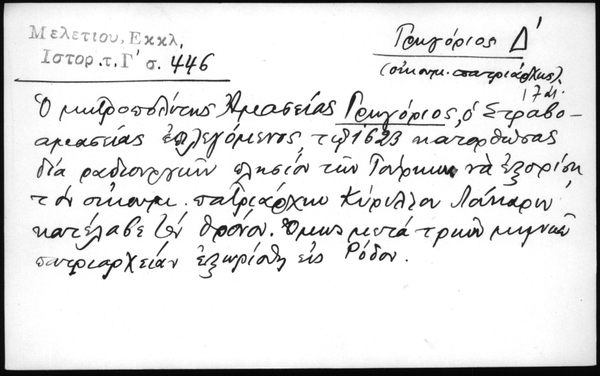 Μελετίου, Εκκλ,
Ιστορ.τ.Γ' σ. 446
Γρηγόριος Δ'
(οἰκουμ. πατριάρχης)
17 αἰ.
Ὁ μητροπολίτης Ἀμασείας Γρηγόριος, ὁ Στραβο-
αμασείας ἐπιλεγόμενος, τῷ 1623 κατορθώσας
διά ραδιουργιῶν πλησίον τῶν Τούρκων νὰ ἐξορίση
τὸν οἰκουμ. πατριάρχην Κύριλλον Λούκαριν
κατέλαβε τὸν θρόνον. Ὅμως μετά τριῶν μηνῶν
πατριαρχείαν ἐξωρίσθη εἰς Ρόδον.